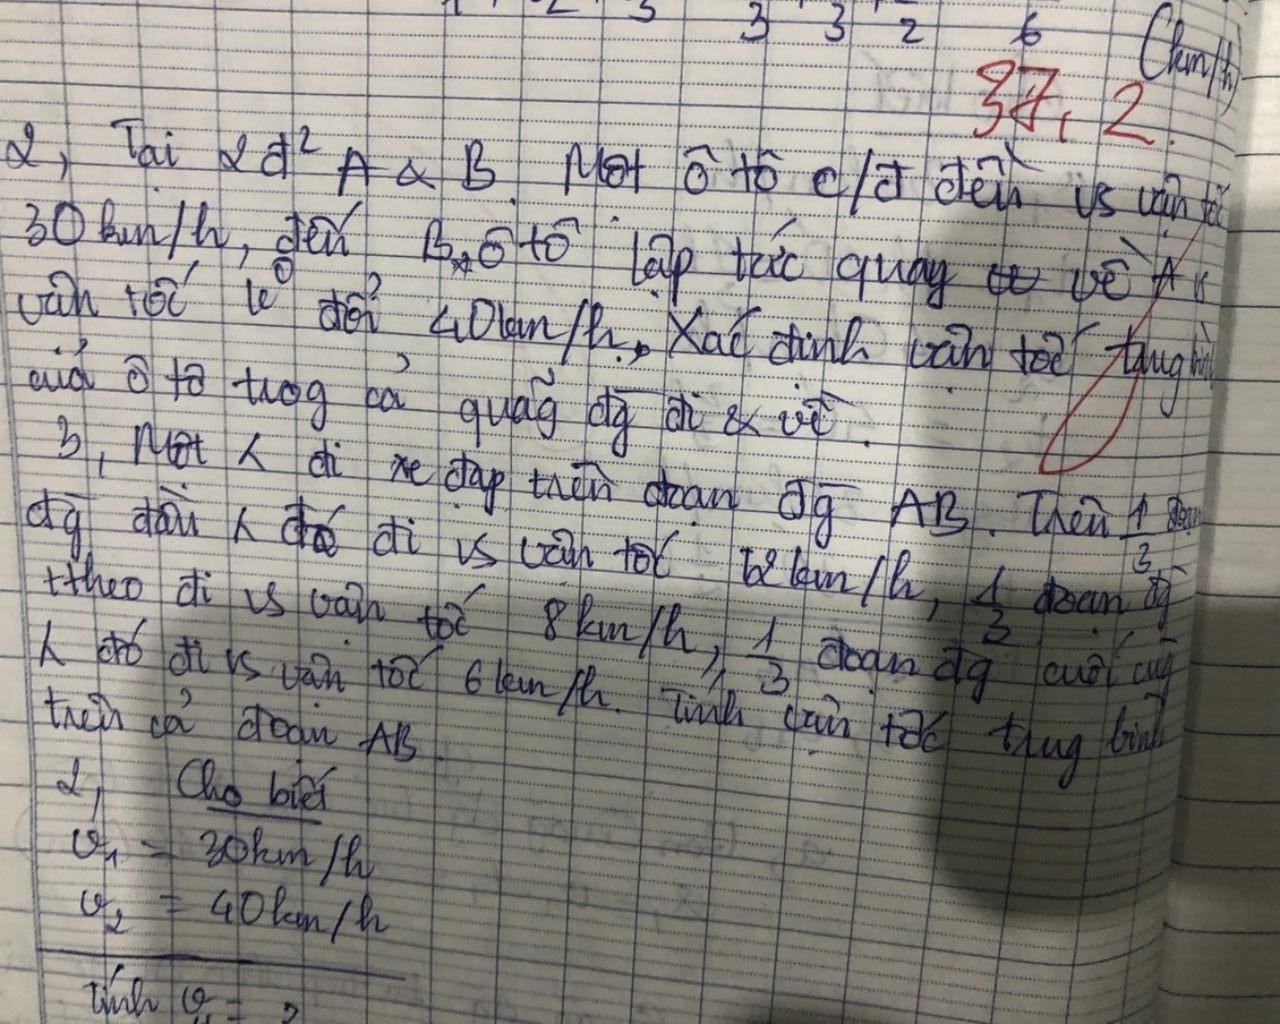 3 3 2 6 (km/h)
37,2
2, Tại 2 đ² A & B. Một ô tô c/đ đều vs vận tốc
30 km/h, đến B, ô tô lập tức quay về A vs
vận tốc k⁰ đổi 40km/h, Xác định vận tốc trug bình
của ô tô trog cả quãg đg đi & về.
3, Một λ đi xe đạp trên đoạn đg AB. Trên 1/3 đoạn
đg đầu λ đó đi vs vận tốc 12 km/h, 1/3 đoạn đg
ttheo đi vs vận tốc 8 km/h, 1/3 đoạn đg cuối cùg
λ đó đi vs vận tốc 6 km/h. Tính vận tốc trug bình
trên cả đoạn AB.
2, Cho biết
v₁ = 30km/h
v₂ = 40km/h
Tính v = ?